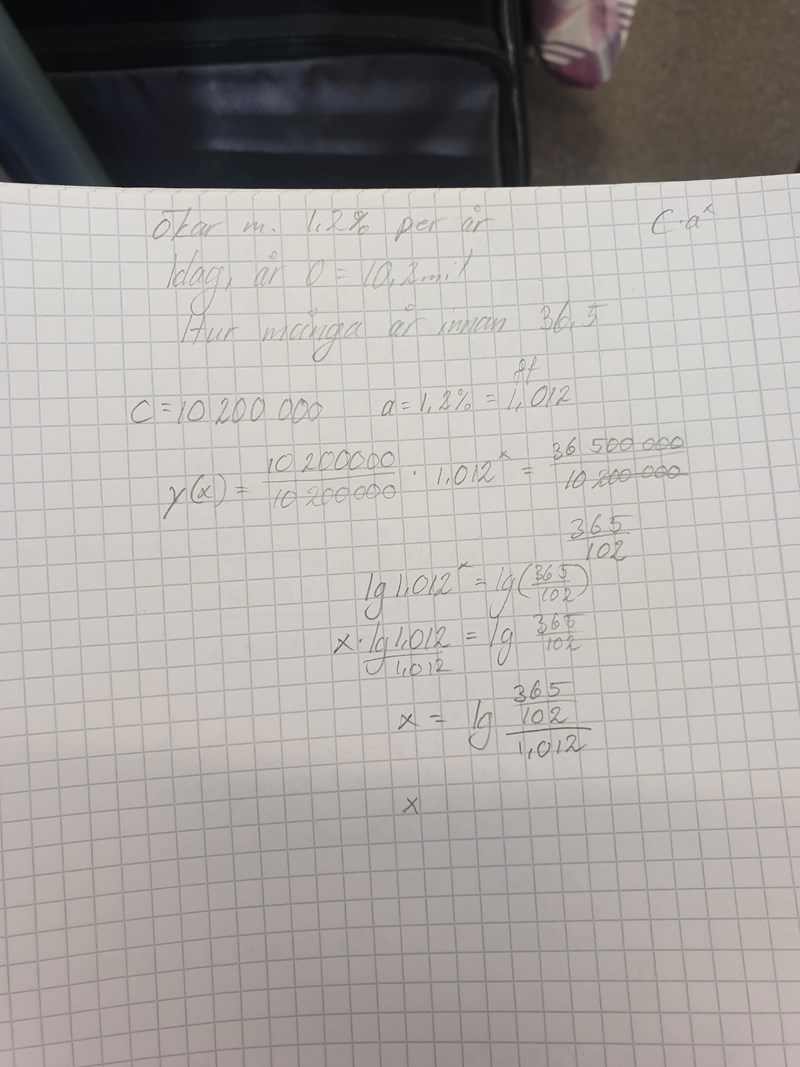 Ökar m. 1,2% per år C·a^x
Idag, år 0 = 10,2 mil
Hur många år innan 36,5
ff
C = 10 200 000 a = 1,2% = 1,012
y(x) = 10 200000/10 200000 · 1,012^x = 36 500 000/10 200 000
365/102
lg 1,012^x = lg(365/102)
x · lg 1,012/1,012 = lg 365/102
x = lg 365/102/1,012
x